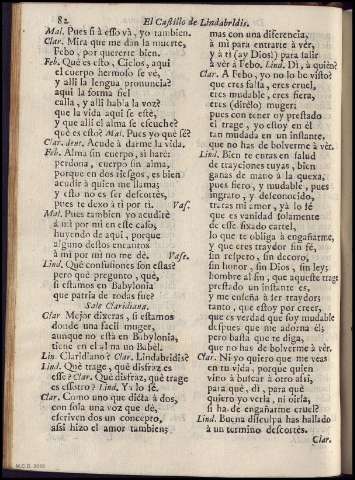 82 El Castillo de Lindabridis.
Mal. Pues si à esso và, yo tambien.
Clar. Mira que me dan la muerte,
Febo, por quererte bien.
Feb. Què es esto, Cielos, aqui
el cuerpo hermoso se vè,
y allì la lengua pronuncia?
aqui la forma fiel
calla, y alli habla la voz?
que la vida aqui se estè,
y que alli el alma se escuche?
què es esto? Mal. Pues yo què sè?
Clar. dent. Acude à darme la vida.
Feb. Alma sin cuerpo, si harè:
perdona, cuerpo sin alma,
porque en dos riesgos, es bien
acudir à quien me llama;
y esto no es ser descortès,
pues te dexo à ti por ti. Vas.
Mal. Pues tambien yo acudirè
à mi por mi en este caso,
huyendo de aqui, porque
alguno destos encantos
à mi por mi no me dè. Vase.
Lind. Què confusiones son estas?
pero què pregunto, què,
si estamos en Babylonia
que patria de todas fue?
Sale Claridiana.
Clar. Mejor dixeras, si estamos
donde una facil muger,
aunque no està en Babylonia,
tiene en el alma su Babèl.
Lin. Claridiano? Clar. Lindabridis?
Lind. Què trage, què disfraz es
esse? Clar. Què disfraz, què trage
es essotro? Lind. Yo lo sè.
Clar. Como uno que dicta à dos,
con sola una voz que dè,
escriven dos un concepto,
assi hizo el amor tambien;
mas con una diferencia,
à mi para entrarte à vèr,
y à ti (ay Dios!) para salir
à vèr à Febo. Lind. Dì, à quièn?
Clar. A Febo, yo no lo he visto?
que eres falsa, eres cruel,
eres mudable, eres fiera,
eres (dirèlo) muger;
pues con tener oy prestado
el trage, yo estoy en èl
tan mudada en un instante,
que no has de bolverme à vèr.
Lind. Bien te curas en salud
de trayciones tuyas, bien
ganas de mano à la quexa,
pues fiero, y mudable, pues
ingrato, y desconocido,
tratas mi amor, yà lo sè
que es vanidad solamente
de esse fixado cartel,
lo que te obliga à engañarme,
y que eres traydor sin fè,
sin respeto, sin decoro,
sin honor, sin Dios, sin leys
hombre al fin, que aqueste trage
prestado un instante es,
y me enseña à ser traydora
tanto, que estoy por creer,
que es verdad que soy mudable
despues que me adorna èl;
pero basta que te diga,
que no has de bolverme à vèr.
Clar. Ni yo quiero que me veas
en tu vida, porque quien
vino à buscar à otro assi,
para què, dì, para què
quiero yo verla, ni oìrla,
si ha de engañarme cruel?
Lind. Buena disculpa has hallado
à un termino descortès.
Clar.